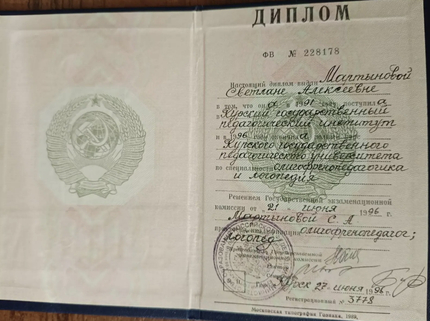 ДИПЛОМ
ФВ № 228178
Настоящий диплом выдан Мартыновой
Светлане Алексеевне
в том, что он а в 1991 году поступил а
в Курский государственный
педагогический институт
и в 1996 году окончил а полный
Курского государственного
педагогического университета
по специальности олигофренопедагогика
и логопедия
Решением Государственной экзаменационной
комиссии от 21 июня 1996 г.
Мартыновой С. А
олигофренопедагог;
логопед
Курск 27 июня 1996 г.
Регистрационный № 3778
Московская типография Гознака.